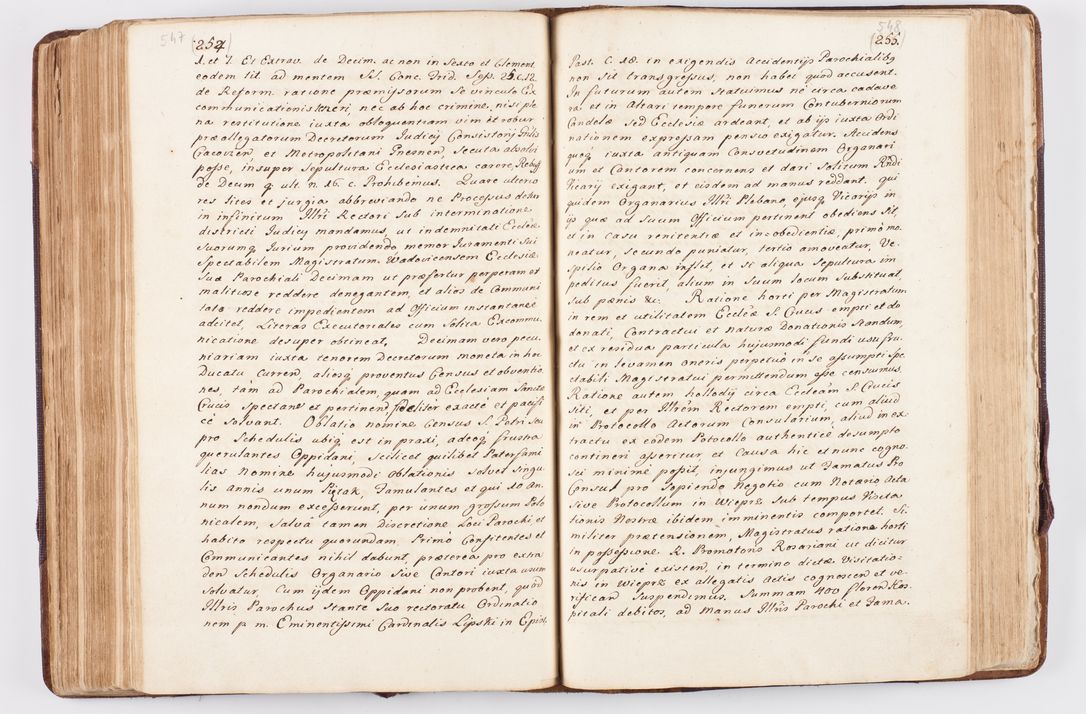 547
(254)
1. et 7. Et Extrav. de Decim. ac non in Sexto et Clement.
eodem tit. ad mentem Sal. Conc. Trid. Sess. 25. C. 12.
de Reform. ratione præmissorum Se vinculo Ex
communicationis nec ab hoc crimine, nisi ple
na restitutione iuxta obloquentiam vim et robur
præallegatorum Decretorum Iudicij Consistorij Gnlis
Cracovien, et Metropolitani Gnesnen, Secuta absolvi
posse, insuper Sepultura Ecclesiastica carere, Rebuff
de Decim q. ult. n. 16. c. Prohibemus. Quare ulterio
res lites et jurgia abbreviando ne Processus
in infinitum Illri Rectori Sub interminatione
districti Iudicij mandamus, ut indemnitati Ecclæ
Suorumq Iurium providendo memor Iuramenti Sui
Spectabilem Magistratum Wadovicensem Ecclesiæ
Suæ Parochiali Decimam ut præfertur perperam et
malitiose reddere denegantem, et alios de Communi
tate reddere impedientem ad Officium instantaneè
adcitet, Literas Executoriales cum Solita Excommu
nicatione desuper obtineat. Decimam vero pecu
niariam iuxta tenorem Decretorum moneta in hoc
Ducatu Curren, aliosq proventus Census et obventio
nes, tàm ad Parochialem, quam ad Ecclesiam Sanctæ
Crucis Spectan et pertinend fideliter exactè et pacifi
cè Solvant. Oblatio nomine Census S. Petri Seu
pro Schedulis ubiq est in praxi, adeoq frustra
querulantes Oppidani, Scilicet quilibet Paterfami
lias Nomine hujusmodi Oblationis Solvet Singu
lis annis unum Piętak, Famulantes et qui 10 an
num nondum excesserunt, per unum grossum Polo
nicalem, Salvâ tamen Discretione Loci Parochi et
habito respectu quorundam. Primò Confitentes et
Communicantes nihil dabunt, præterea pro extra
den Schedulis Organario Sive Cantori iuxta usum
Solvatur. Cum ijdem Oppidani non probent, quòd
Illris Parochus Stante Suo rectoratu Ordinatio
nem p. m. Eminentissimi Cardinalis Lipski in Epist.
548
(255)
Past. C. 18. in exigendis Accidentijs Parochialibq
non Sit transgressus, non habet quòd accusent.
In futurum autem Statuimus nè circa cadave
ra, et in Altari tempore funerum Contuberniorum
Candelæ Sed Ecclesiæ ardeant, et ab ijs iuxta Ordi
nationem expressam pensio exigatur. Accidens
quoq iuxta antiquam Consvetudinem Organari
um et Cantorem concernens et dari Solitum Rndi
Vicarij exigant, et eisdem ad manus reddant. qui
quidem Organarius Illri Plebano, ejusq Vicarijs in
ijs quæ ad Suum Officium pertinent obediens Sit,
et in Casu renitentiæ et inobedientiæ, primò mo
neatur, Secundo puniatur, tertio amoveatur, Ve
spilio Organa inflet, et Si aliqua Sepultura im
peditus fuerit, alium in Suum locum Substituat,
Sub pænis &c. Ratione horti per Magistratum
in rem et utilitatem Eccliæ S. Crucis empti et do
donati, Contractui et Naturæ Donationis Standum,
et ex residua particula hujusmodi fundi usufru
ctu in levamen oneris perpetuò in Se assumpti Spe
ctabili Magistratui permittendum esse censuimus.
Ratione autem hallodij circa Eccleam S. Crucis
Siti, et per Illrem Rectorem empti, cum aliud
in Protocollo Actorum Consularium, aliud in ex
tractu ex eodem Potocollo authenticè desumpto
contineri asseritur, et Causa hîc et nunc cogno
sci minimè possit, injungimus ut Famatus Pro
Consul pro Sopiendo Negotio cum Notario Acta
Sive Protocollum in Wieprz Sub tempus Visita
tionis Nostræ ibidem imminentis comportet. Si
militer prætensionem, Magistratus ratione horti
in possessione R. Promotoris Rosariani ut dicitur
usurpativè existen, in termino dictæ Visitatio=
nis in Wieprz ex allegatis Actis cognoscen et ve
rifican Suspendimus. Summam 400 floren Hos
pitali debitos, ad manus Illris Parochi et Fama.